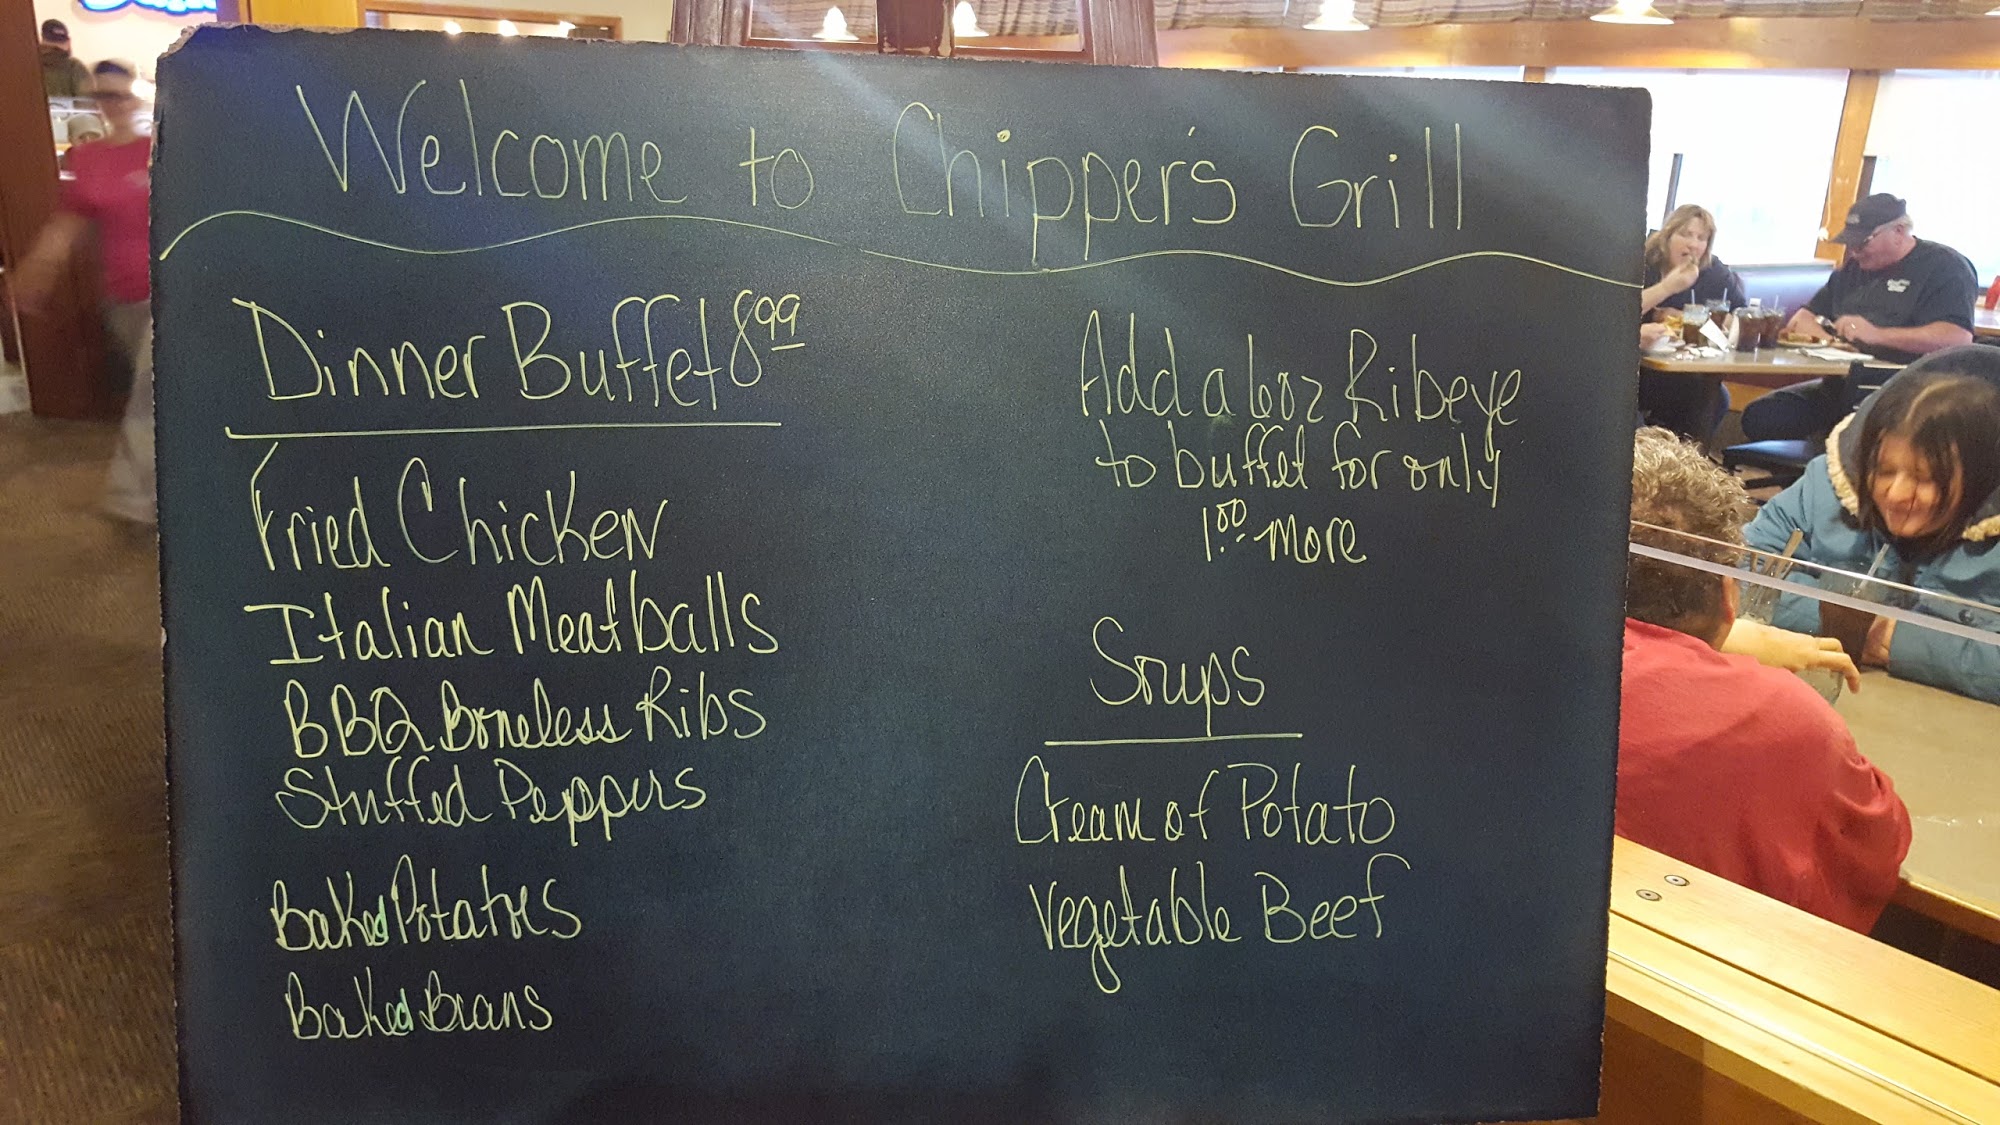 Welcome to Chipper's Grill
Dinner Buffet 8.99
Fried Chicken
Italian Meatballs
BBQ Boneless Ribs
Stuffed Peppers
Baked Potatoes
Baked Beans
Add a 6oz Ribeye
to buffet for only
1.00 more
Soups
Cream of Potato
Vegetable Beef